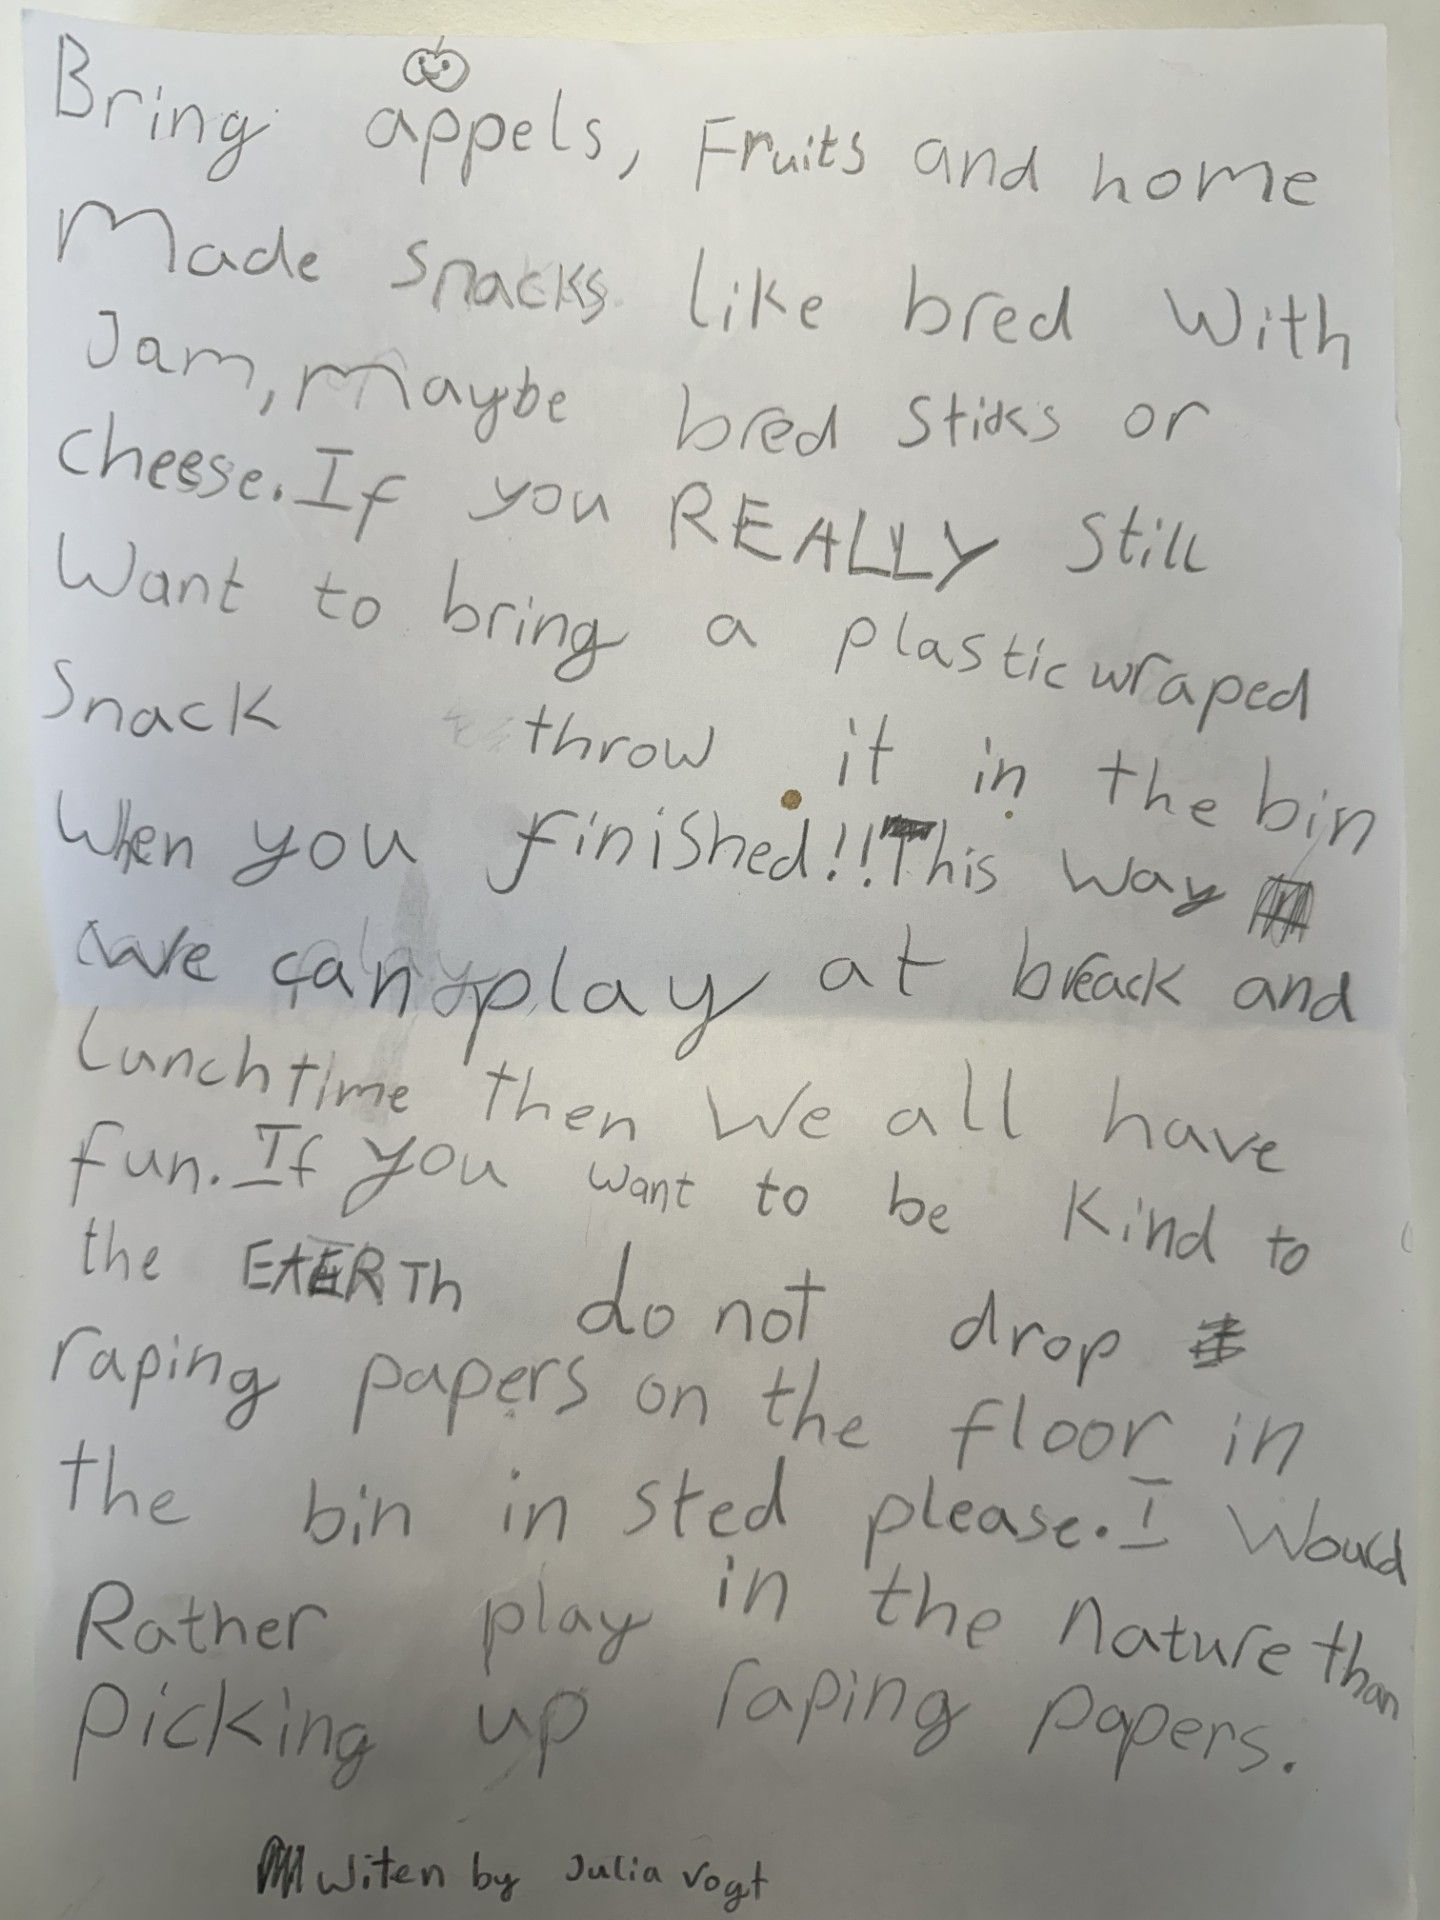 Bring appels, Fruits and home
Made snacks like bred With
Jam, maybe bred stiks or
cheese. If you REALLY still
Want to bring a plastic wraped
Snack throw it in the bin
When you finished!! This way
we can play at breack and
Lunchtime then We all have
fun. If you want to be Kind to
the EARTh do not drop
raping papers on the floor in
the bin in sted please. I Would
Rather play in the nature than
picking up raping papers.
Witen by Julia Vogt